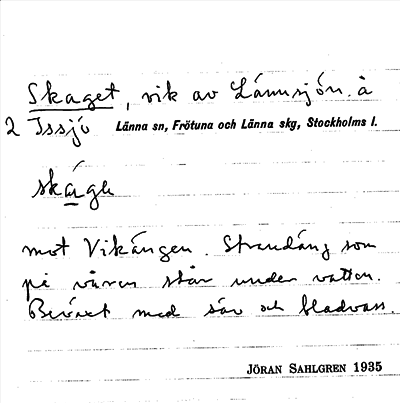 Skaget, vik av Lännsjön. å
2 Issjö Länna sn, Frötuna och Länna skg, Stockholms l.
skága
mot Vikängen. Strandäng som
på våren står under vatten.
Beväxt med säv och bladvass.
JÖRAN SAHLGREN 1935